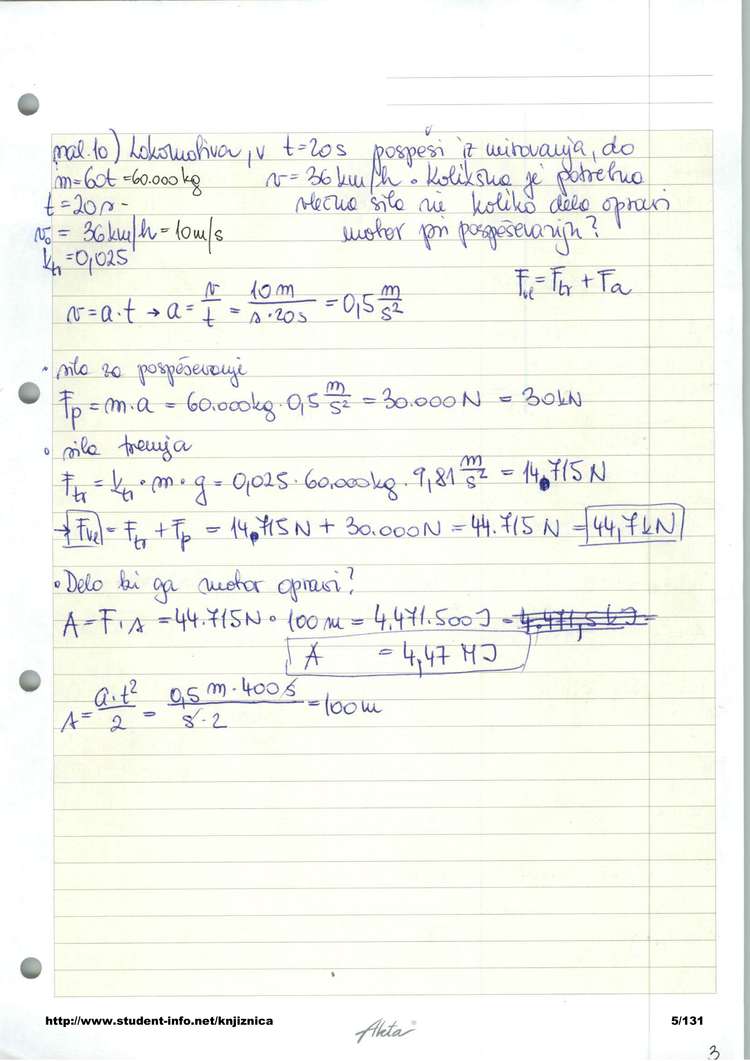 nal.10) Lokomotiva, v t=20s pospeši iz mirovanja, do
m=60t =60.000kg v=36km/h. Kolikšna je potrebna
t=20s- vlečna sila in koliko dela opravi
v₀ = 36km/h = 10m/s motor pri pospeševanju?
k_tr=0,025
F_vl = F_tr + F_a
v=a·t → a= v/t = 10m/s·20s = 0,5 m/s²
• sila za pospeševanje
F_p = m·a = 60.000kg·0,5 m/s² = 30.000N = 30kN
• sila trenja
F_tr = k_tr·m·g = 0,025·60.000kg·9,81 m/s² = 14.715N
→ F_vl = F_tr + F_p = 14.715N + 30.000N = 44.715N = 44,7kN
• Delo ki ga motor opravi?
A=F·s = 44.715N·100m = 4.471.500J = 4.471,5kJ =
A = 4,47 MJ
s= a·t²/2 = 0,5m·400s/s·2 = 100m
http://www.student-info.net/knjiznica
Akta
5/131
3